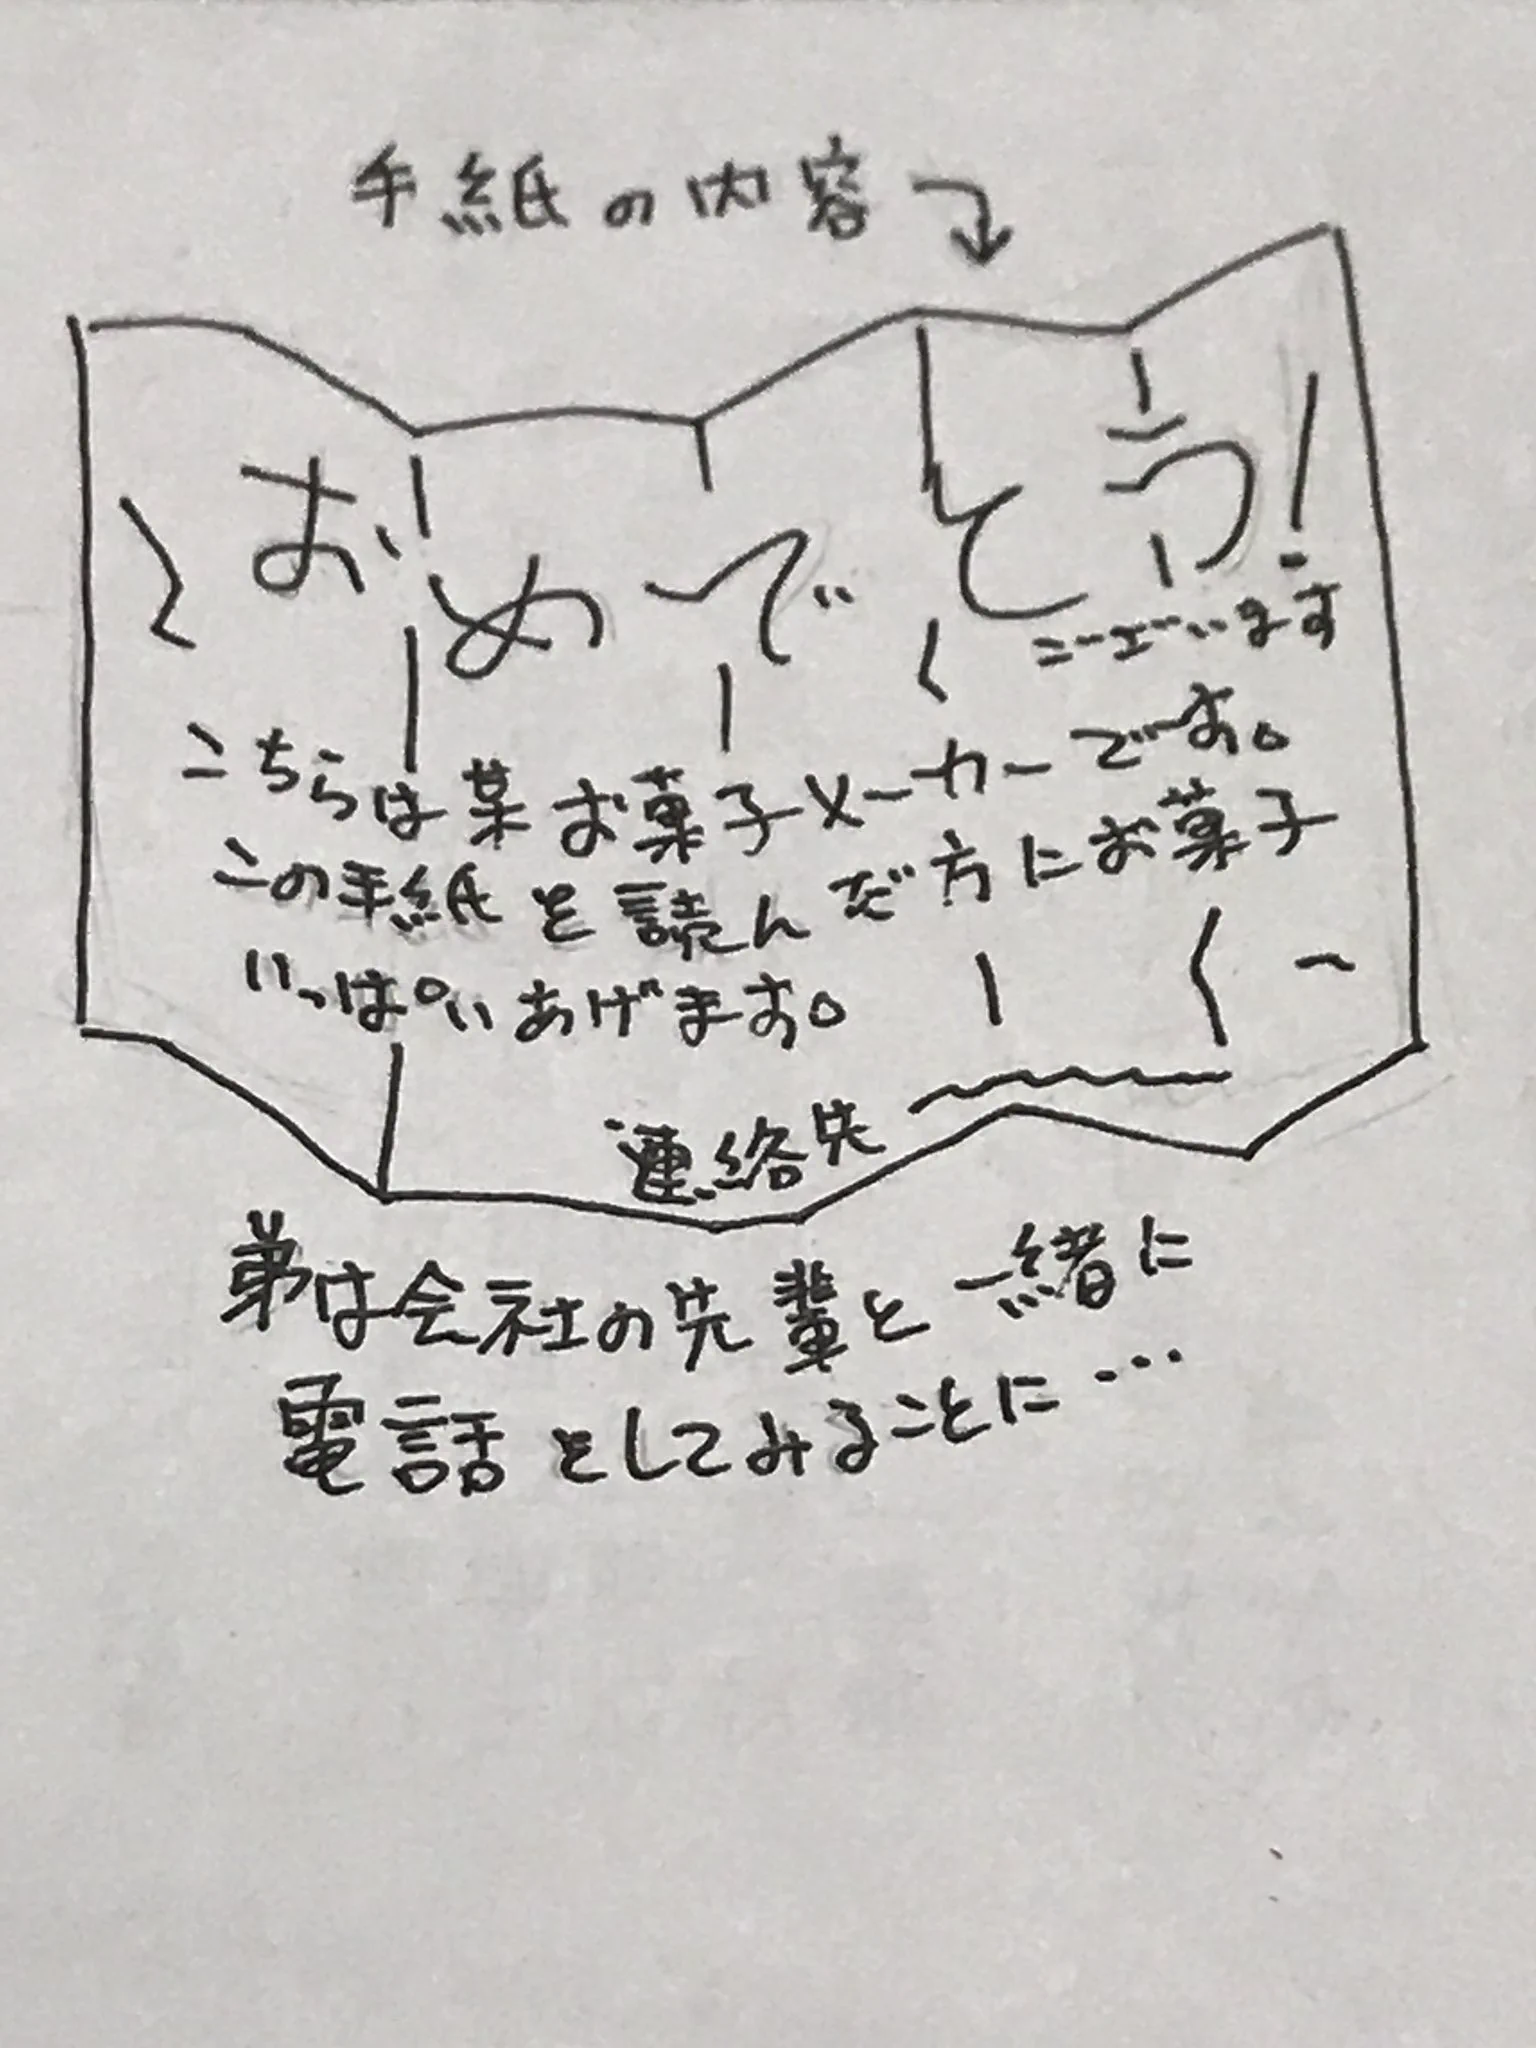 手紙の内容
おめでとう!
ございます
こちらは某お菓子メーカーです。
この手紙を読んだ方にお菓子
いっぱいあげます。
連絡先
弟は会社の先輩と一緒に
電話をしてみることに…